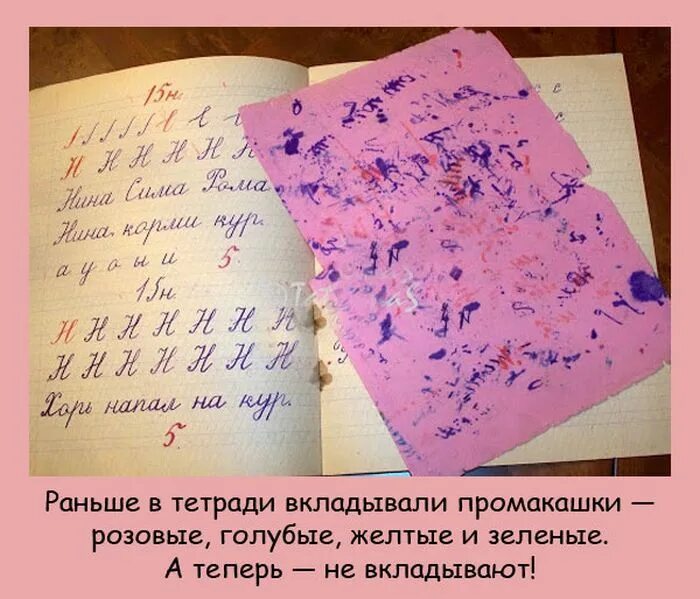 15н.
Н Н Н Н Н Н
Нина Сима Рома
Нина, корми кур.
а у о ы и 5.
15н.
Н Н Н Н Н Н Н
Н Н Н Н Н Н Н
Хорь напал на кур.
5.
Раньше в тетради вкладывали промакашки —
розовые, голубые, желтые и зеленые.
А теперь — не вкладывают!